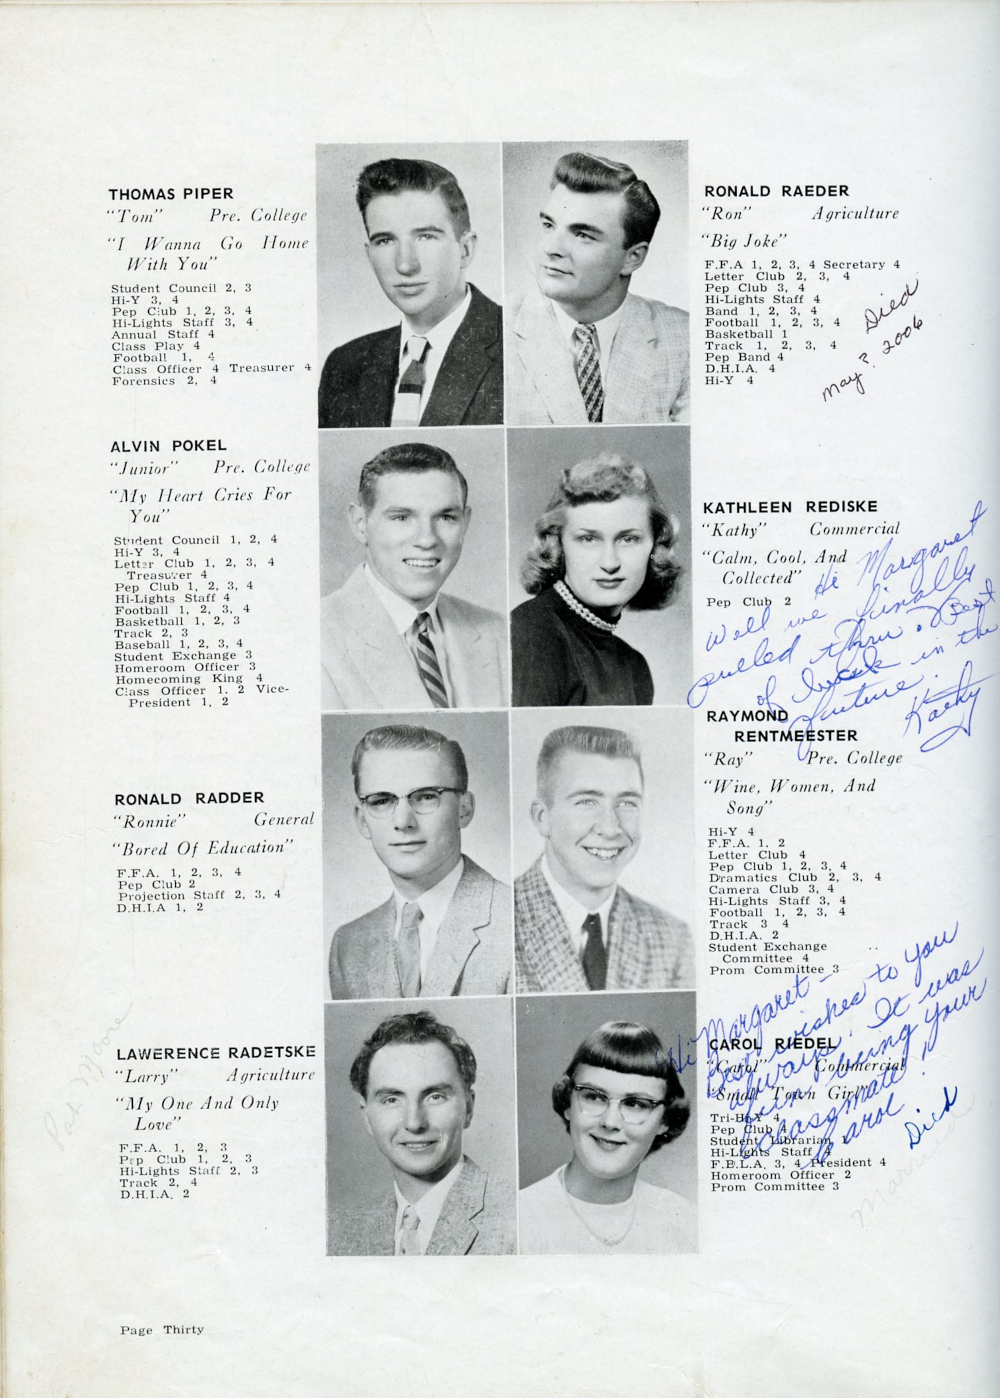 THOMAS PIPER
"Tom" Pre. College
"I Wanna Go Home
With You"
Student Council 2, 3
Hi-Y 3, 4
Pep Club 1, 2, 3, 4
Hi-Lights Staff 3, 4
Annual Staff 4
Class Play 4
Football 1, 4
Class Officer 4 Treasurer 4
Forensics 2, 4
ALVIN POKEL
"Junior" Pre. College
"My Heart Cries For
You"
Student Council 1, 2, 4
Hi-Y 3, 4
Letter Club 1, 2, 3, 4
Treasurer 4
Pep Club 1, 2, 3, 4
Hi-Lights Staff 4
Football 1, 2, 3, 4
Basketball 1, 2, 3
Track 2, 3
Baseball 1, 2, 3, 4
Student Exchange 3
Homeroom Officer 3
Homecoming King 4
Class Officer 1. 2 Vice-
President 1, 2
RONALD RADDER
"Ronnie" General
"Bored Of Education"
F.F.A. 1, 2, 3, 4
Pep Club 2
Projection Staff 2, 3, 4
D.H.I.A 1, 2
Pat Moore
LAWERENCE RADETSKE
"Larry" Agriculture
"My One And Only
Love"
F.F.A. 1, 2, 3
Pep Club 1, 2, 3
Hi-Lights Staff 2, 3
Track 2, 4
D.H.I.A. 2
RONALD RAEDER
"Ron" Agriculture
"Big Joke"
F.F.A 1, 2, 3, 4 Secretary 4
Letter Club 2, 3, 4
Pep Club 3, 4
Hi-Lights Staff 4
Band 1, 2, 3, 4
Football 1, 2, 3, 4
Basketball 1
Track 1, 2, 3, 4
Pep Band 4
D.H.I.A. 4
Hi-Y 4
Died
May ? 2006
KATHLEEN REDISKE
"Kathy" Commercial
"Calm, Cool, And
Collected"
Pep Club 2
Hi Margaret
Well we finally
pulled thru. Best
of luck in the
future.
Kathy
RAYMOND
RENTMEESTER
"Ray" Pre. College
"Wine, Women, And
Song"
Hi-Y 4
F.F.A. 1, 2
Letter Club 4
Pep Club 1, 2, 3, 4
Dramatics Club 2, 3, 4
Camera Club 3, 4
Hi-Lights Staff 3, 4
Football 1, 2, 3, 4
Track 3 4
D.H.I.A. 2
Student Exchange
Committee 4
Prom Committee 3
Hi Margaret –
Best wishes to you
always. It was
fun being your
classmate!
Carol
CAROL RIEDEL
"Carol" Commercial
"Small Town Girl"
Tri-Hi-Y 4
Pep Club 4
Student Librarian
Hi-Lights Staff 4
F.B.L.A. 3, 4 President 4
Homeroom Officer 2
Prom Committee 3
Died
Page Thirty